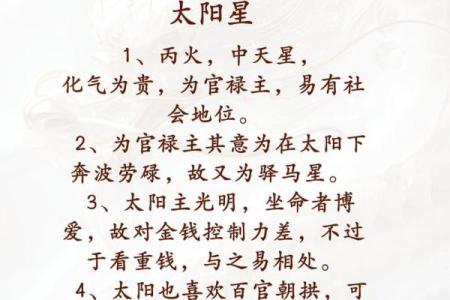 太阳星
1、丙火，中天星，
化气为贵，为官禄主，易有社
会地位。
2、为官禄主其意为在太阳下
奔波劳碌，故又为驿马星。
3、太阳主光明，坐命者博
爱，故对金钱控制力差，不过
于看重钱，与之易相处。
4、太阳也喜欢百官朝拱，可